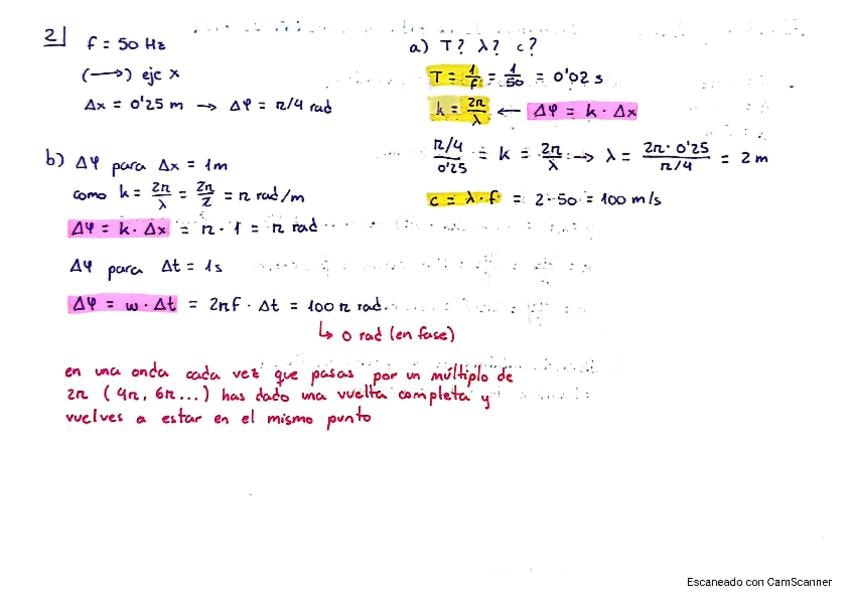 2|
f = 50 Hz
(⟶) eje x
Δx = 0'25 m → Δφ = π/4 rad
a) T? λ? c?
T = 1/f = 1/50 = 0'02 s
k = 2π/λ ← Δφ = k · Δx
π/4 / 0'25 = k = 2π/λ → λ = 2π · 0'25 / π/4 = 2 m
c = λ · f = 2 · 50 = 100 m/s
b) Δφ para Δx = 1m
como k = 2π/λ = 2π/2 = π rad/m
Δφ = k · Δx = π · 1 = π rad
Δφ para Δt = 1s
Δφ = w · Δt = 2πf · Δt = 100 π rad.
↳ 0 rad (en fase)
en una onda cada vez que pasas por un múltiplo de
2π (4π, 6π...) has dado una vuelta completa y
vuelves a estar en el mismo punto
Escaneado con CamScanner